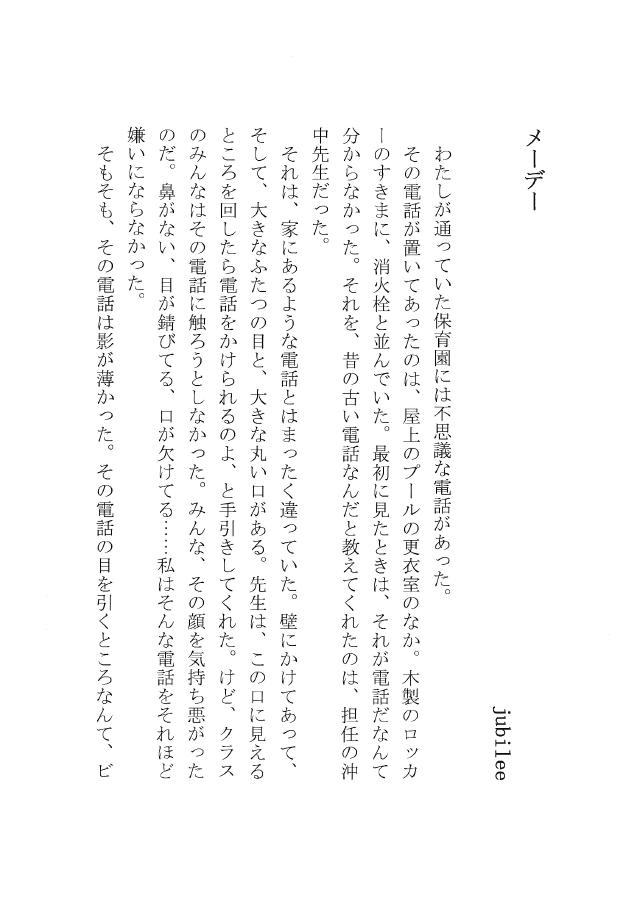 メーデー
jubilee
わたしが通っていた保育園には不思議な電話があった。
その電話が置いてあったのは、屋上のプールの更衣室のなか。木製のロッカ
ーのすきまに、消火栓と並んでいた。最初に見たときは、それが電話だなんて
分からなかった。それを、昔の古い電話なんだと教えてくれたのは、担任の沖
中先生だった。
それは、家にあるような電話とはまったく違っていた。壁にかけてあって、
そして、大きなふたつの目と、大きな丸い口がある。先生は、この口に見える
ところを回したら電話をかけられるのよ、と手引きしてくれた。けど、クラス
のみんなはその電話に触ろうとしなかった。みんな、その顔を気持ち悪がった
のだ。鼻がない、目が錆びてる、口が欠けてる……私はそんな電話をそれほど
嫌いにならなかった。
そもそも、その電話は影が薄かった。その電話の目を引くところなんて、ビ